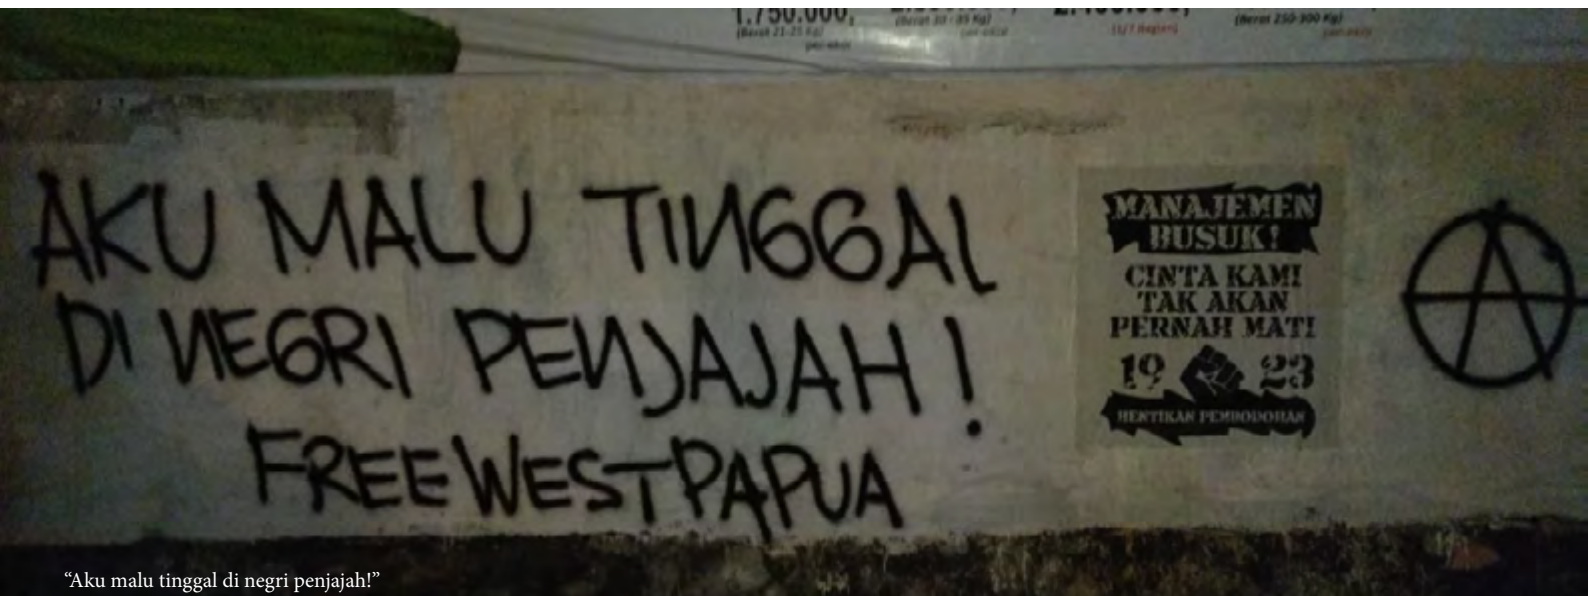 1.750.000,
(Berat 21-25 Kg)
(Berat 250-300 Kg)
AKU MALU TINGGAL
DI NEGRI PENJAJAH!
FREE WEST PAPUA
MANAJEMEN
BUSUK!
CINTA KAMI
TAK AKAN
PERNAH MATI
19 23
HENTIKAN PEMBODOHAN
A
“Aku malu tinggal di negri penjajah!”